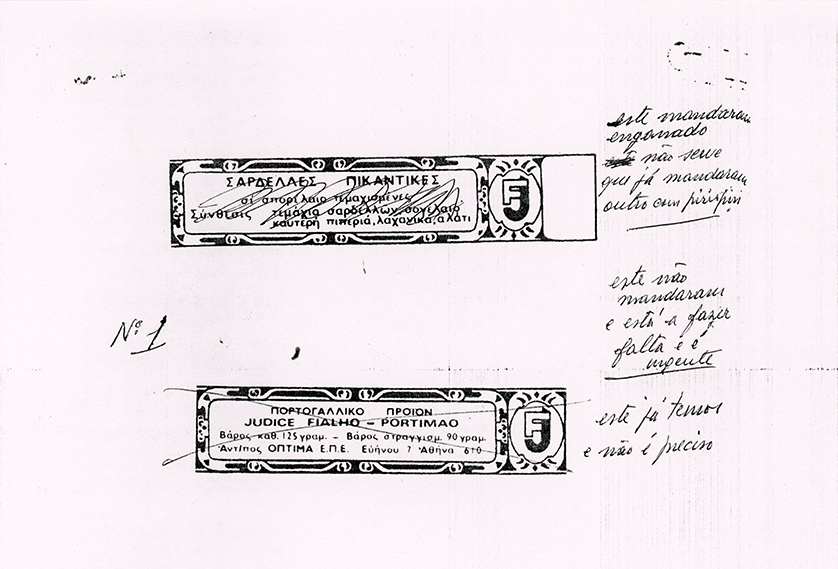 este mandaram
enganado
não serve
que já mandaram
outro com piripiri
ΣΑΡΔΕΛΑΕΣ ΠΙΚΑΝΤΙΚΕΣ
σέ σπορέλαιο τεμαχισμένες
Σύνθεσις τεμάχια σαρδελλων, σογέλαιο
καυτερή πιπεριά, λαχανικά, αλάτι
FJ
este não
mandaram
e está a fazer
falta e é
urgente
Nº 1
ΠΟΡΤΟΓΑΛΛΙΚΟ ΠΡΟΙΟΝ
JUDICE FIALHO – PORTIMAO
Βάρος καθ. 125 γραμ. – Βάρος στραγγισμ. 90 γραμ.
Άντ/πος ΟΠΤΙΜΑ Ε.Π.Ε. Εύήνου 7 Άθήνα 610
FJ
este já temos
e não é preciso